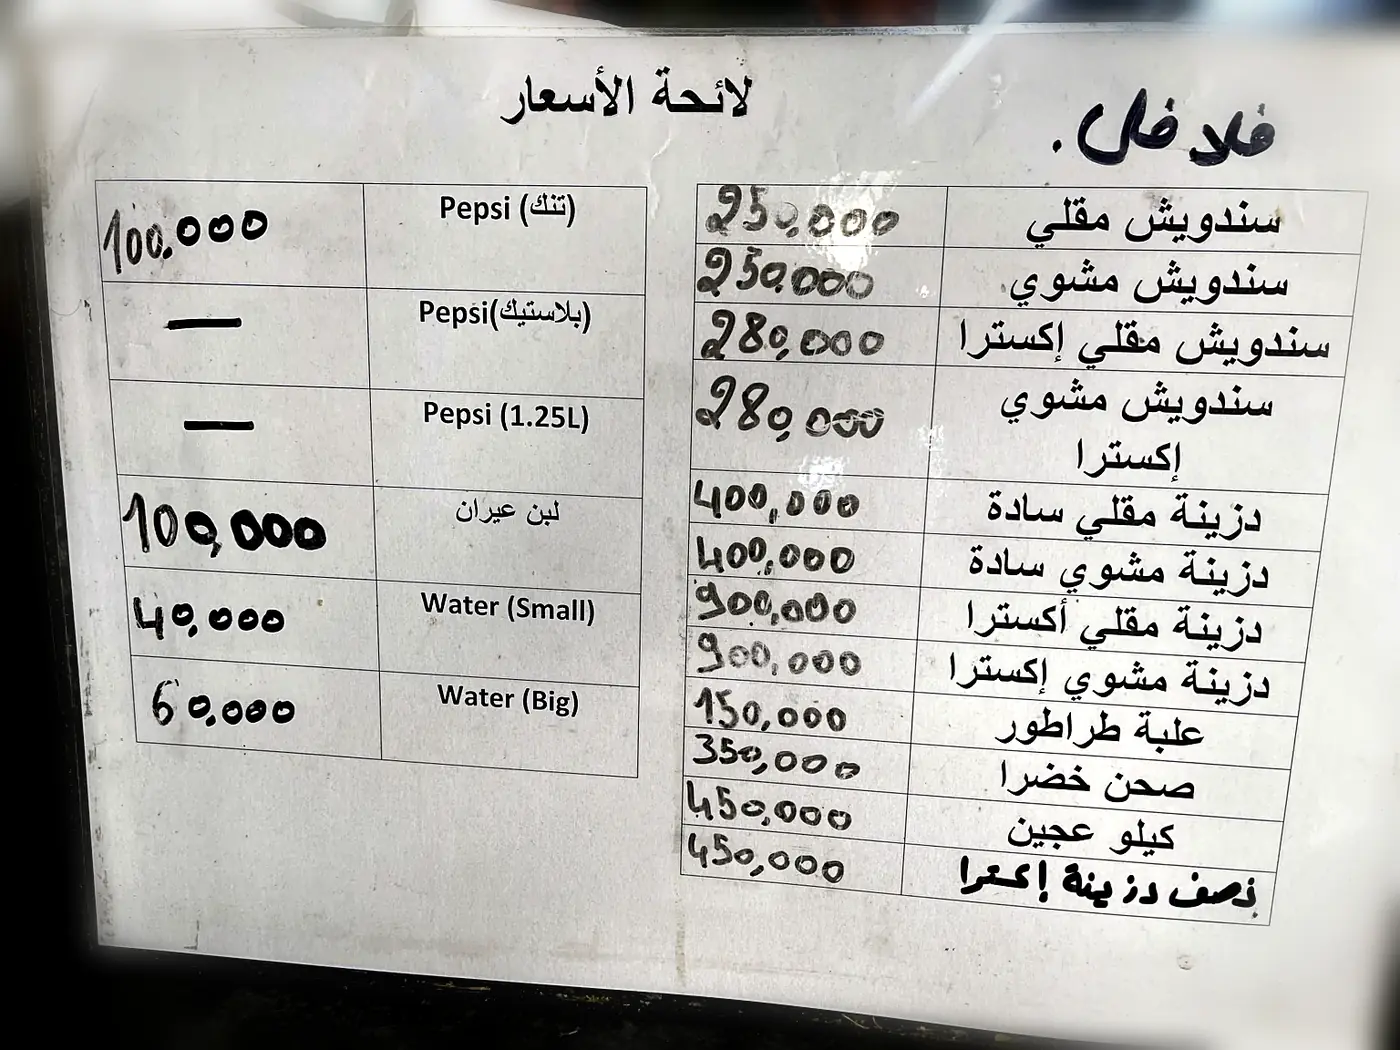 لائحة الأسعار
فلافل.
سندويش مقلي 250,000
سندويش مشوي 250,000
سندويش مقلي إكسترا 280,000
سندويش مشوي 280,000
إكسترا
دزينة مقلي سادة 400,000
دزينة مشوي سادة 400,000
دزينة مقلي أكسترا 900,000
دزينة مشوي إكسترا 900,000
علبة طراطور 150,000
صحن خضرا 350,000
كيلو عجين 450,000
نصف دزينة إكسترا 450,000
Pepsi (تنك) 100,000
Pepsi(بلاستيك) —
Pepsi (1.25L) —
لبن عيران 100,000
Water (Small) 40,000
Water (Big) 60,000